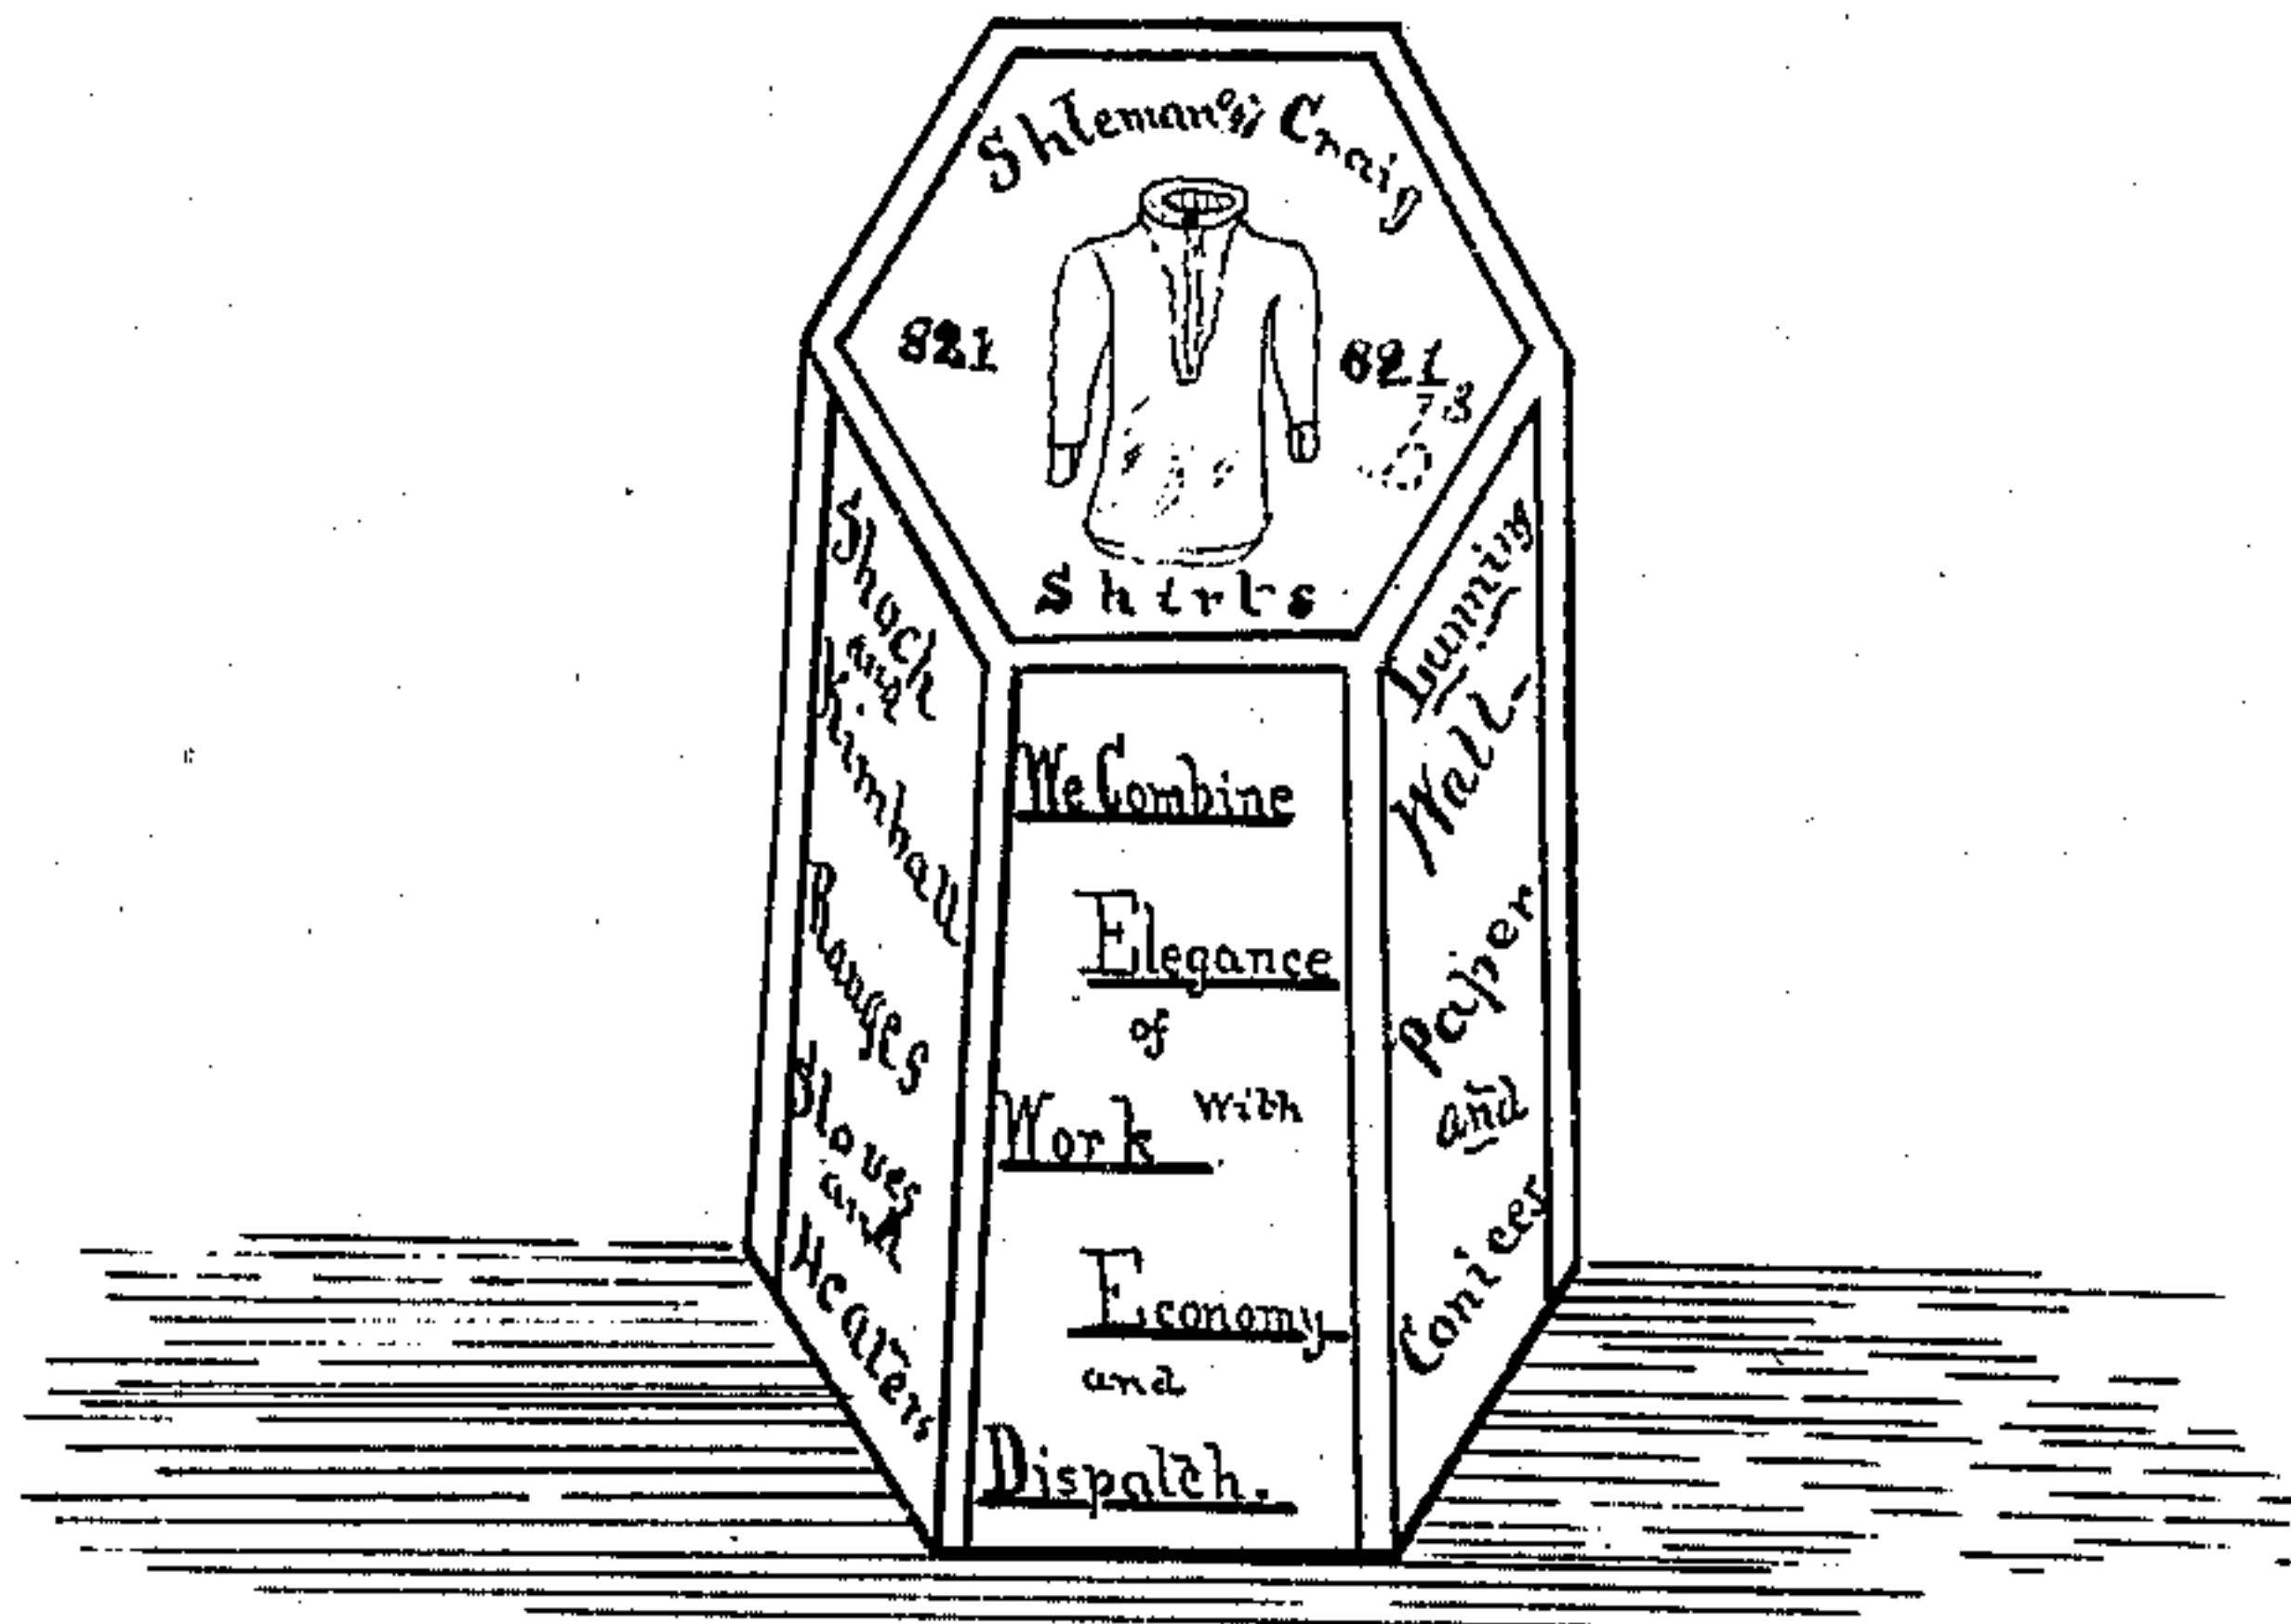 Craig
821
821
Shirts
Shach
and
Kimball
Ranges
Stoves
and
Heaters
We Combine
Elegance
of
Work with
Economy
and
Dispatch.
Luming
Wall-
Paper
and
Conices